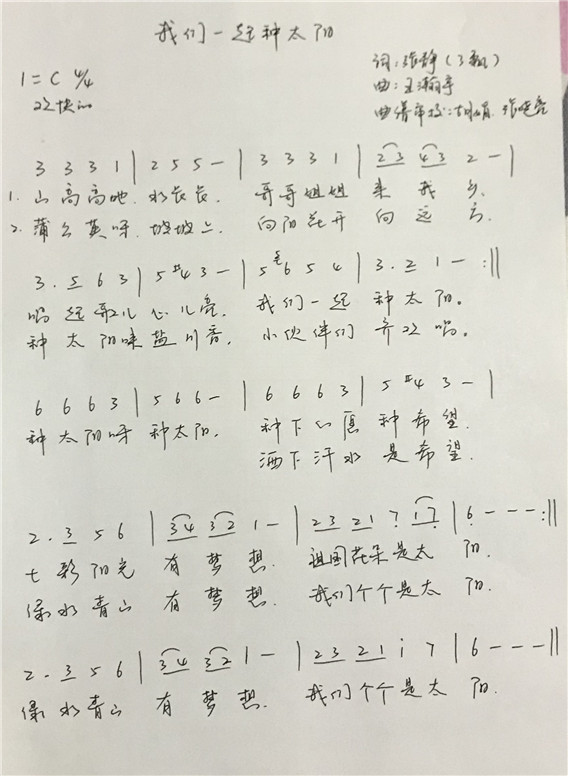 我们一起种太阳
词:张静(3题)
1=C 4/4
曲:王瀚亭
欢快的
曲谱审校:胡娟 张晓亮
3 3 3 1 | 2 5 5 - | 3 3 3 1 | 2 3 4 3 2 - |
1. 山高高地 水长长. 哥哥姐姐 来我乡.
2. 蒲公英呀 坡坡上. 向阳花开 向远方.
3. 5 6 3 | 5 #4 3 - | 5 6 5 4 | 3. 2 1 - :||
唱起歌儿心儿亮. 我们一起 种太阳.
种太阳味盐川香. 小伙伴们 齐欢唱.
6 6 6 3 | 5 6 6 - | 6 6 6 3 | 5 #4 3 - |
种太阳呀 种太阳. 种下心愿 种希望.
洒下汗水 是希望.
2. 3 5 6 | 3 4 3 2 1 - | 2 3 2 1 7 1 7 | 6 - - - :||
七彩阳光 有梦想. 祖国花朵是太阳.
绿水青山 有梦想. 我们个个是太阳.
2. 3 5 6 | 3 4 3 2 1 - | 2 3 2 1 i 7 | 6 - - - ||
绿水青山 有梦想. 我们个个是太阳.